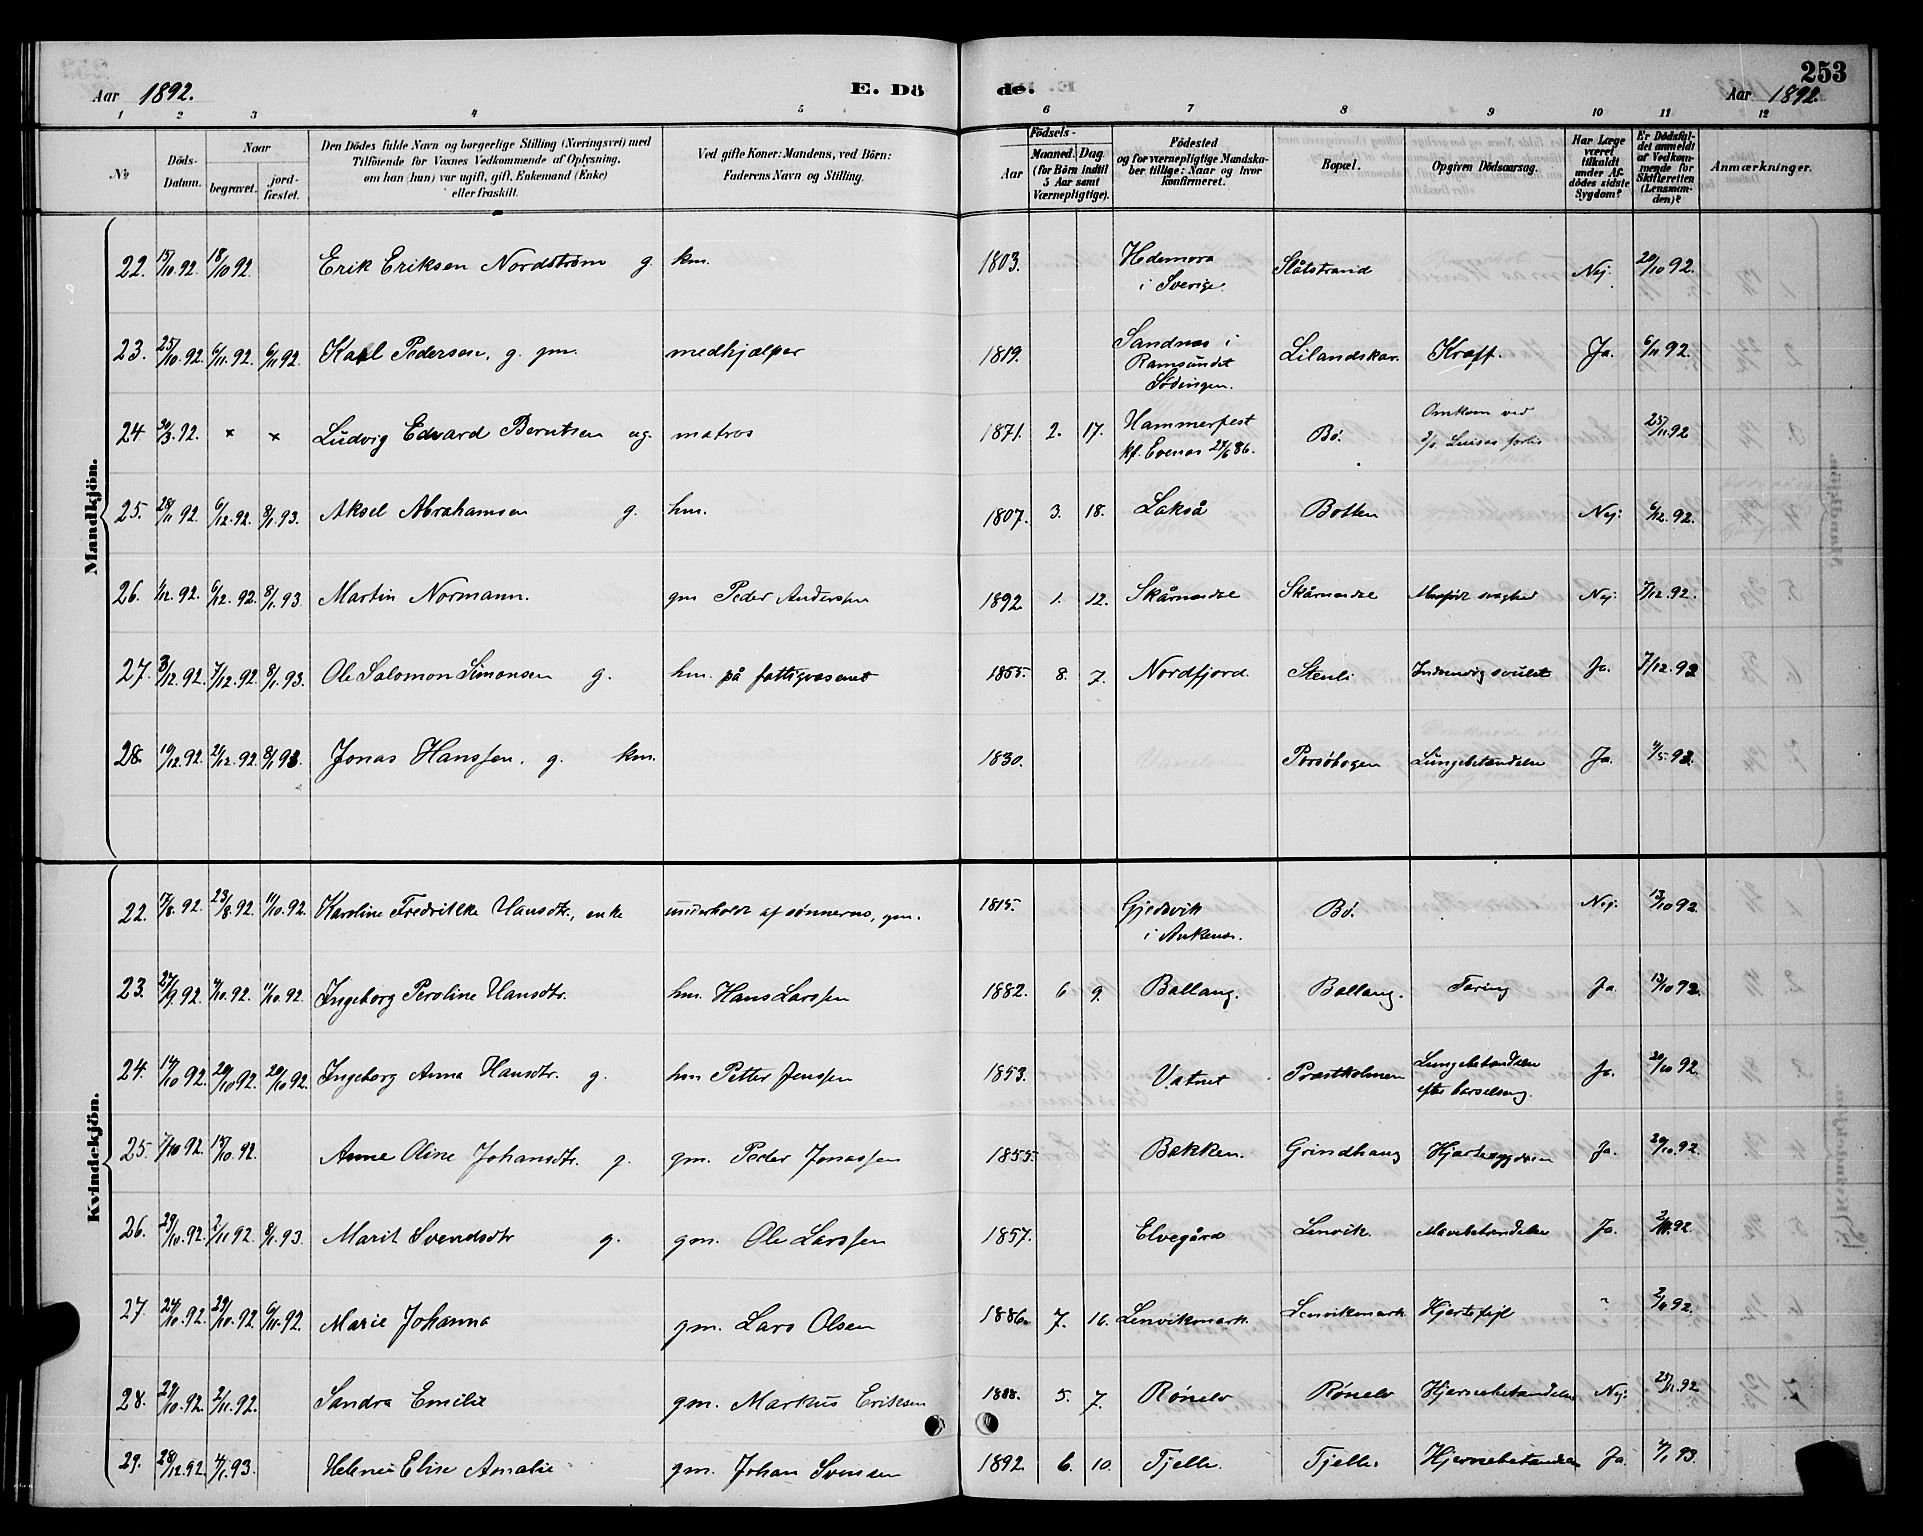 253
Aar 1892. E. Dö de. Aar 1892.
1 2 3 4 5 6 7 8 9 10 11 12
№
Döds-Datum.
Naar
begravet.
jord-fæstet.
Den Dödes fulde Navn og borgerlige Stilling (Næringsvei) med
Tilföiende for Voxnes Vedkommende af Oplysning,
om han (hun) var ugift, gift, Enkemand (Enke)
eller fraskilt.
Ved gifte Koner: Mandens, ved Börn:
Faderens Navn og Stilling.
Födsels-
Aar
Maaned. Dag
(for Börn indtil
5 Aar samt
Værnepligtige).
Födested
og for værnepligtige Mandska-
ber tillige: Naar og hvor
konfirmeret.
Bopæl.
Opgiven Dödsaarsag.
Har Læge
været
tilkaldt
under Af-
dödes sidste
Sygdom?
Er Dödsfal-
det anmeldt
af Vedkom-
mende for
Skifteretten
(Lensman-
den)?
Anmærkninger.
Mandkjön.
22. 15/10 92. 18/10 92 Erik Eriksen Nordstrøm g. km. 1803. Hedemora i Sverige. Slåtstrand Nej. 20/10 92.
23. 25/10 92. 6/11 92. 6/11 92 Karl Pedersen, g. gm. medhjælper 1819. Sandnes i Ramsundet Lødingen. Lilandskar. Kræft. Ja. 6/11 92.
24 30/3 92. × × Ludvig Edvard Berntsen ug. matros 1871. 2. 17. Hammerfest kf. Evenes 27/6 86. Bø. Omkom ved 25/11 92
25. 28/11 92 6/12 92. 8/1 93. Aksel Abrahamsen g. hm. 1807. 3. 18. Lakså Botten Nej: 6/12 92.
26. 1/12 92. 6/12 92. 8/1 93 Martin Normann. gm Peder Andersen 1892 1. 12. Skårnesdal Skårnesdal Medfødt svaghed Nej: 7/12 92.
27. 3/12 92. 7/12 92 8/1 93. Ole Salomon Simonsen g. hm. på fattigvæsenet 1855. 8. 7. Nordfjord. Stenli Indvendig svulst Ja. 7/12 92
28. 19/12 92 21/12 92. 8/1 93. Jonas Hanssen, g. km. 1830. Porsøbogen Lungebetændelse Ja. 4/5 93.
Kvindekjön.
22. 17/8 92. 23/8 92. 11/10 92. Karoline Fredrikke Hansdtr., enke underholdt af sønnerne, gm. 1815. Gjedsvik i Ankenes. Bø. Nej. 13/10 92.
23. 27/9 92 11/10 92. 11/10 92. Ingeborg Peroline Hansdtr. hm. Hans Larssen 1882. 6 9. Ballang. Ballang. Tæring Ja. 13/10 92.
24. 14/10 92. 20/10 92. 20/10 92. Ingeborg Anna Hansdtr. g. hm Petter Jenssen 1853. Vatnet Præstholmen Lungebetændelse efter barselseng. Ja. 20/10 92.
25. 7/10 92. 15/10 92. Anne Oline Johansdtr. g. gm. Peder Jonassen 1855. Bakken. Grindhaug Hjertesygdom Ja. 20/10 92.
26. 29/10 92. 2/11 92. 8/1 93. Marit Svendsdtr g. gm. Ole Larssen 1857. Elvegård Lenvik. Mavebetændelse Ja. 2/11 92.
27. 24/10 92. 29/10 92. 6/11 92. Marie Johanna gm. Lars Olsen 1886. 7. 16. Lenvikmark. Lenvikmark. Hjertefejl " 2/11 92.
28. 29/10 92. 2/11 92. Sandra Emilie gm. Markus Eriksen 1888. 5. 7. Rønelv Rønelv Hjernebetændelse Nej: 25/11 92
29. 28/12 92. 4/1 93. Helene Elise Amalie gm. Johan Svensen 1892. 6. 10. Tjelle. Tjelle. Hjernebetændelse Ja. 4/1 93.